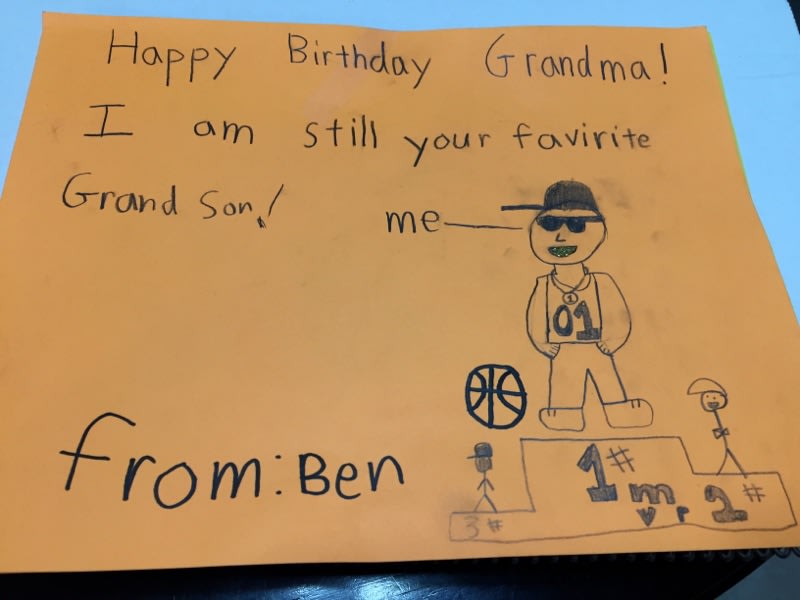 Happy Birthday Grandma!
I am still your favirite
Grand Son!
me
1
01
from: Ben
1#
m
v P
2#
3#